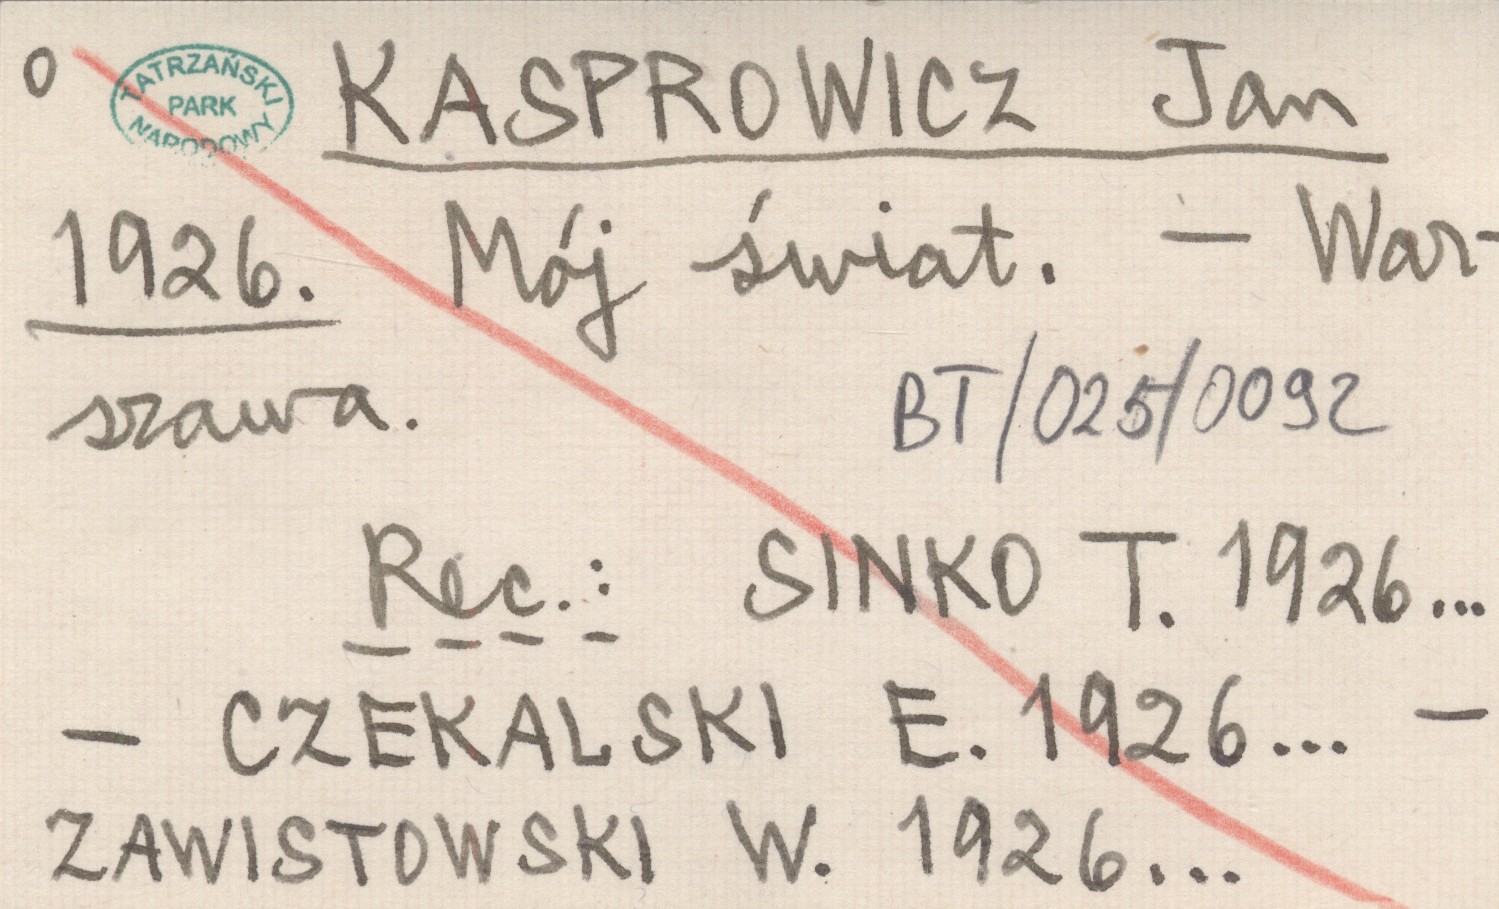 O
TATRZAŃSKI
PARK
NARODOWY
KASPROWICZ Jan
1926. Mój świat. — War-
szawa.
BT/025/0092
Rec.: SINKO T. 1926...
— CZEKALSKI E. 1926... —
ZAWISTOWSKI W. 1926...